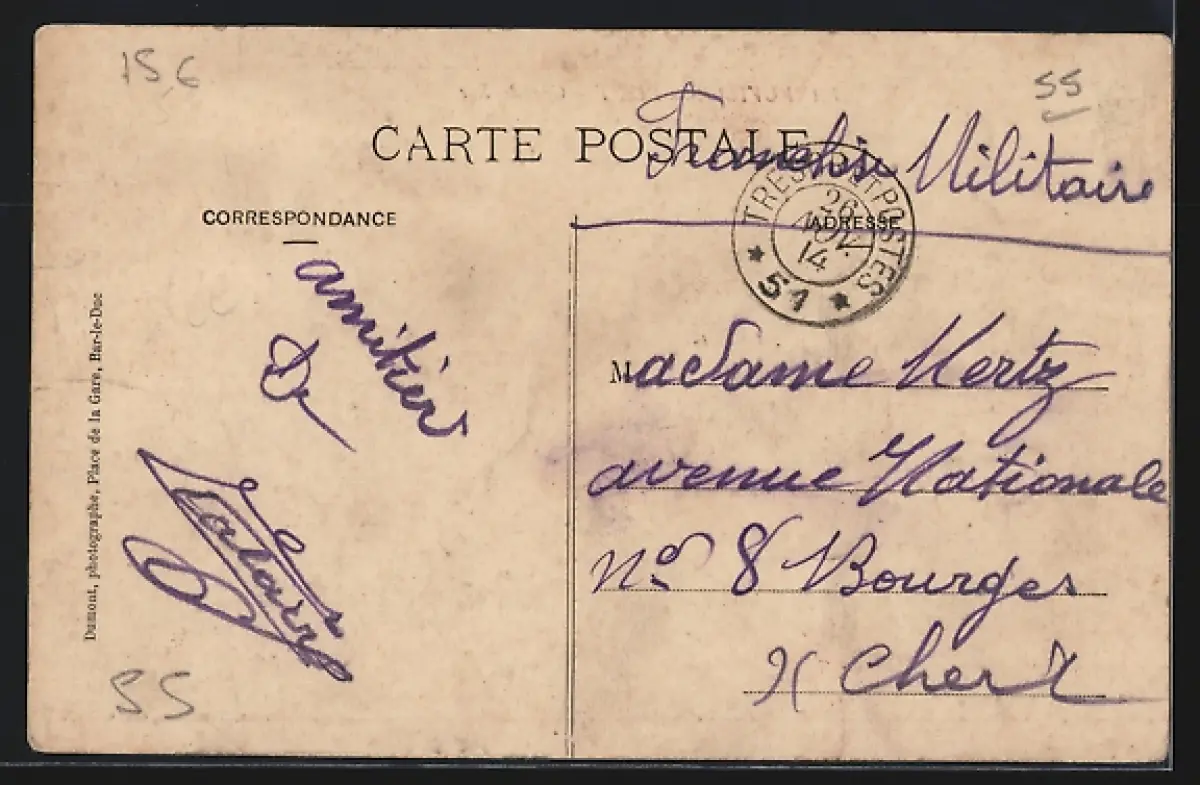 15,6
55
CARTE POSTALE
Franchise Militaire
CORRESPONDANCE
ADRESSE
TRESOR ET POSTES
26
NOV.
14
* 51 *
amitiés
De
Madame Hertz
avenue Nationale
Nº 8 Bourges
Cher
Dumont, photographe, Place de la Gare, Bar-le-Duc
55